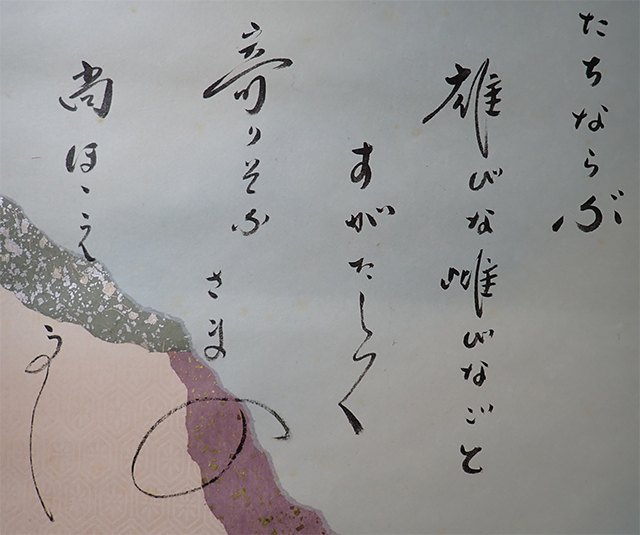 たちならぶ
雄びな雌びなごと
すがたしつく
寄りそふ さまの
尚ほゝえ
うし